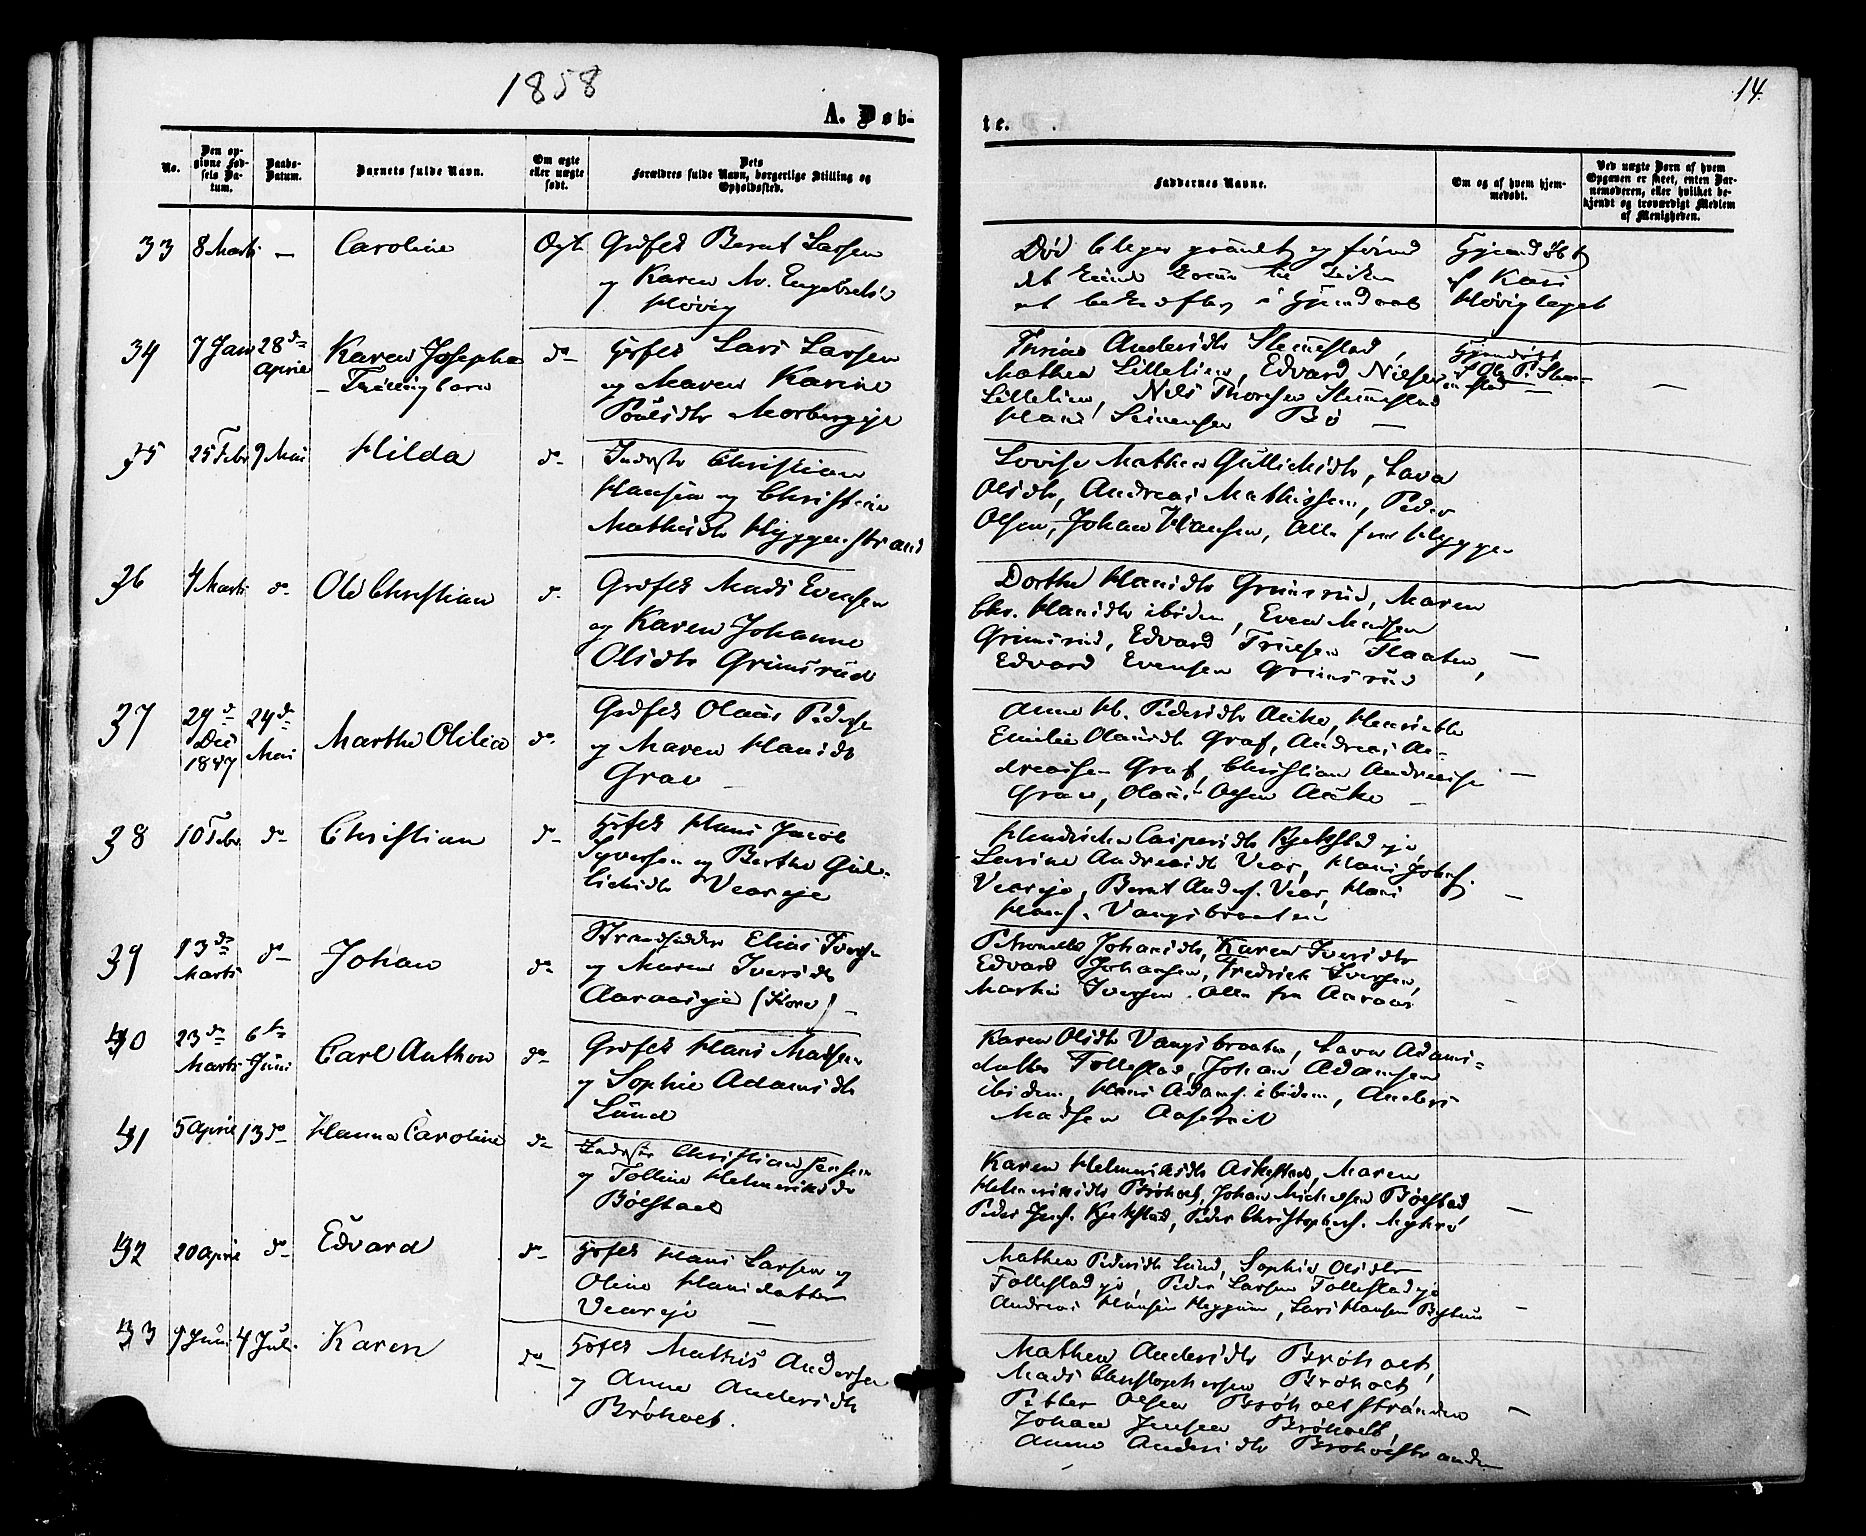 1858
14.
A. Døb-
te.
No.
Den op-
givne Fød-
sels Da-
tum.
Daabs-
Datum.
Barnets fulde Navn.
Om ægte
eller uægte
født.
Dets
Forældres fulde Navn, borgerlige Stilling og
Opholdssted.
Faddernes Navne.
Om og af hvem hjem-
medøbt.
Ved uægte Børn af hvem
Opgaven er skeet, enten Bar-
nemoderen, eller hvilket be-
kjendt og troværdigt Medlem
af Menigheden.
33 8 Marts — Caroline Ægte
Grdfsk Bernt Larsen
og Karen M. Engebretsd
Høvig
Død
Hjemdøbt
af Kari
Høvig
34 7 Jan 28de April Karen Josepha do
– Trillingbarn
Hsfsk Lars Larsen
og Maren Karine
Poulsdtr Morbergeje
Mathea Lillelien, Edvard Nielsen
Lillelien, Nils Thoresen Stemestad
Hans Simensen Bø —
Hjemdøbt
af Ole P. Stem-
—
35 25 Febr 9 Mai Hilda do
Inderst Christian
Hansen og Christine
Mathisdtr Hyggenstrand
Lovise Mathea Gullichsdtr, Lava
Olsdtr, Andreas Mathissen, Peder
Olsen, Johan Hansen, Alle fra Hyggen
36 4 Marts do Ole Christian do
Grdfsk Mads Evensen
og Karen Johanne
Olsdtr Grimsrud
Dorthe Hansdtr Grimsrud, Maren
Chr. Hansdtr ibiden, Even Madsen
Grimsrud, Edvard Friesen Flaaten,
Edvard Evensen Grimsrud
—
37 29de Dec 1857 24de Mai Marthe Olilia do
Grdfsk Olaus Peders
og Maren Hansdtr
Grav —
Anne M. Pedersdtr Auke, Henriette
Emilie Olausdtr Graf, Andreas An-
dreasen Graf, Christian Andreasen
Grav, Olaus Olsen Auke —
—
38 10 Febr do Christian do
Hsfsk Hans Jacob
Syversen og Berthe Gul-
lichsdtr Veareje
Hendrikke Caspersdtr Kjekstadeje
Lavine Andreasdtr Vear, Hans Jobsf.
Veareje, Bernt Andersf. Vear, Hans
Hansf. Vangsbraaten
—
39 13de Marts do Johan do
Strandsidder Elias Iversen
og Maren Iversdtr
Aaraaseje —
Petronelle Johansdtr, Karen Iversdtr
Edvard Johansen, Fredrik Iversen,
Martin Iversen. Alle fra Aaraas
—
40 23de Marts 6te Juni Carl Anthon do
Grdfsk Hans Madsen
og Sophie Adamsdtr
Lund
Karen Olsdtr Vangsbraaten, Lava Adams-
datter Follestad, Johan Adamsen
ibidem, Hans Adamsf. ibidem, Anders
Madsen
41 5 April 13 do Hanna Caroline do
Inderst Christian Jensen
og Tolline Helmeriksdtr
Bølstad
Karen Helmeriksdtr Askestad, Maren
Helmeriksdtr Brøholt, Johan Michelsen Bølstad
Peder Jensf. Kjekstad, Peder Christophersf. Myhre
—
42 20 April do Edvard do
Hsfsk Hans Larsen og
Oline Hansdatter
Veareje —
Mathea Pedersdtr Lund, Sophie Olsdtr
Follestadeje, Peder Larsen Follestadeje
Andreas Hansen Heggum, Lars Hansen
—
43 9 Juni 4 Juli Karen do
Hsfsk Mathis Andersen
og Anne Andersdtr
Brøholt.
Mathea Andersdtr Brøholt,
Mads Christophersen Brøholt
Petter Olsen Brøholtstranden
Johan Jensen Brøholt,
Anne Andersdtr Brøholtstranden
—